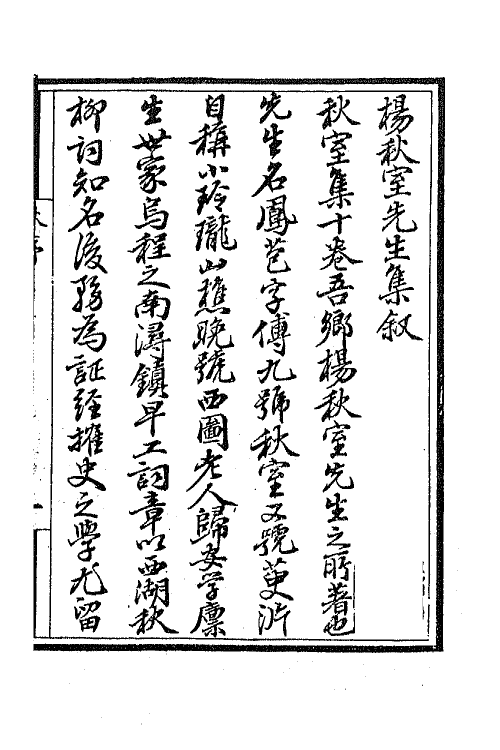 楊秋室先生集叙
秋室集十卷吾鄉楊秋室先生之所著也
先生名鳳苞字傅九號秋室又號萸沜
自稱小玲瓏山樵晚號西圃老人歸安學廪
生世家烏程之南潯鎮早工詞章以西湖秋
柳詞知名後務為證經搉史之學尤留